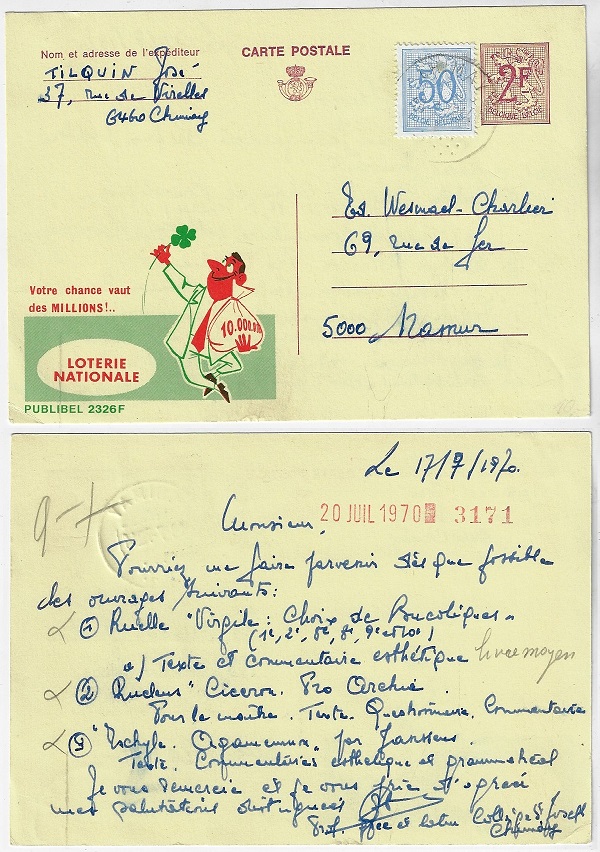 Nom et adresse de l'expéditeur
TILQUIN José
37, rue de Virelles
6460 Chimay
CARTE POSTALE
50
BELGIQUE-BELGIE
2F
BELGIQUE BELGIE
Ed. Wesmael-Charlier
69, rue de Fer
5000 Namur
Votre chance vaut
des MILLIONS!..
10.000.0
LOTERIE
NATIONALE
PUBLIBEL 2326F
Le 17/7/1970.
20 JUIL 1970 3171
9-
Monsieur,
Pourriez me faire parvenir dès que possible
des ouvrages suivants:
① Ruelle "Virgile: Choix de Bucoliques"
(1e, 2e,
a) Texte et commentaire esthétique livre moyen
② "Cicéron. Pro Archia.
Pour le maître. Texte. Questionnaire. Commentaire
"Eschyle. Agamemnon" par Janssens
Texte. Commentaires esthétique et grammatical
Je vous remercie et je vous prie d'agréer
mes salutations distinguées
Prof. grec et latin Collège St Joseph
Chimay